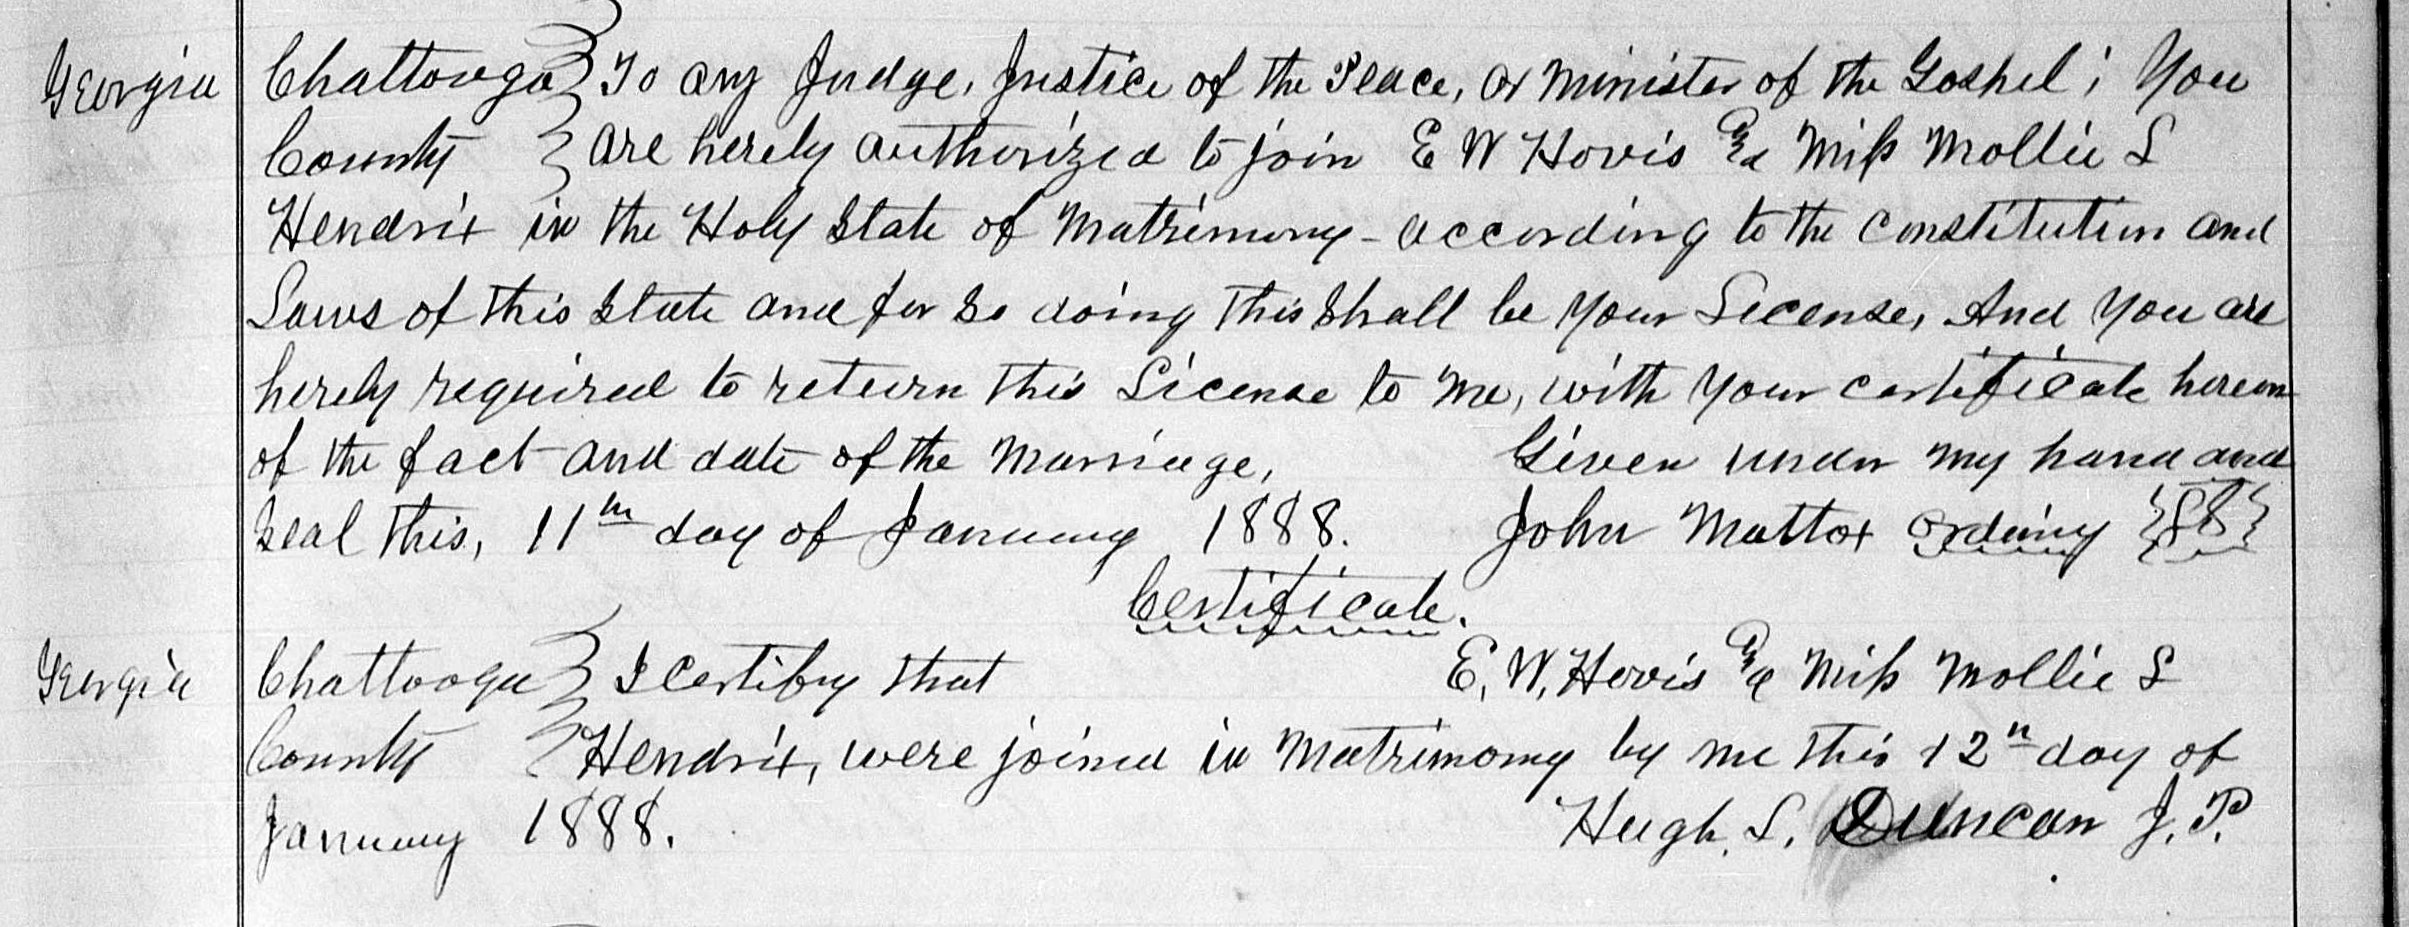 Georgia Chattooga } To any Judge, Justice of the Peace, or Minister of the Gospel; You
County } are hereby authorized to join E W Hovis & Miss Mollie S
Hendrix in the Holy State of Matrimony - according to the constitution and
Laws of this State and for so doing this shall be your License, And you are
hereby required to return this License to me, with your certificate hereon
of the fact and date of the Marriage, Given under my hand and
seal this, 11th day of January 1888. John Mattox Ordinary {SS}
Certificate.
Georgia Chattooga } I certify that E. W. Hovis & Miss Mollie S
County } Hendrix, were joined in Matrimony by me this 12th day of
January 1888. Hugh. S. Duncan J. P.